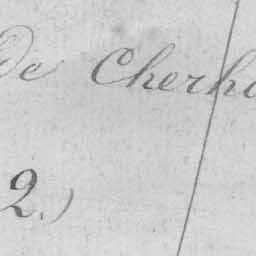 de Cherh
2.)